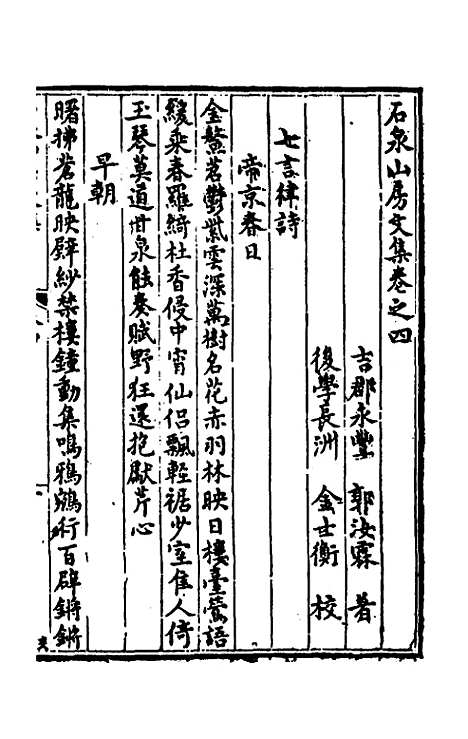 石泉山房文集卷之四
吉郡永豐　郭汝霖　著
後學長洲　金士衡　校
七言律詩
帝京春日
金鰲茗鬱紫雲深萬樹名花赤羽林映日樓臺鶯語
緩乘春羅綺杜香侵中宵仙侣飄輕裾少室隹人倚
玉琴莫道甘泉能奏賦野狂還抱獻芹心
早朝
曙拂蒼龍映碧紗禁樓鐘動集鳴鴉鵷行百辟鏘鏘